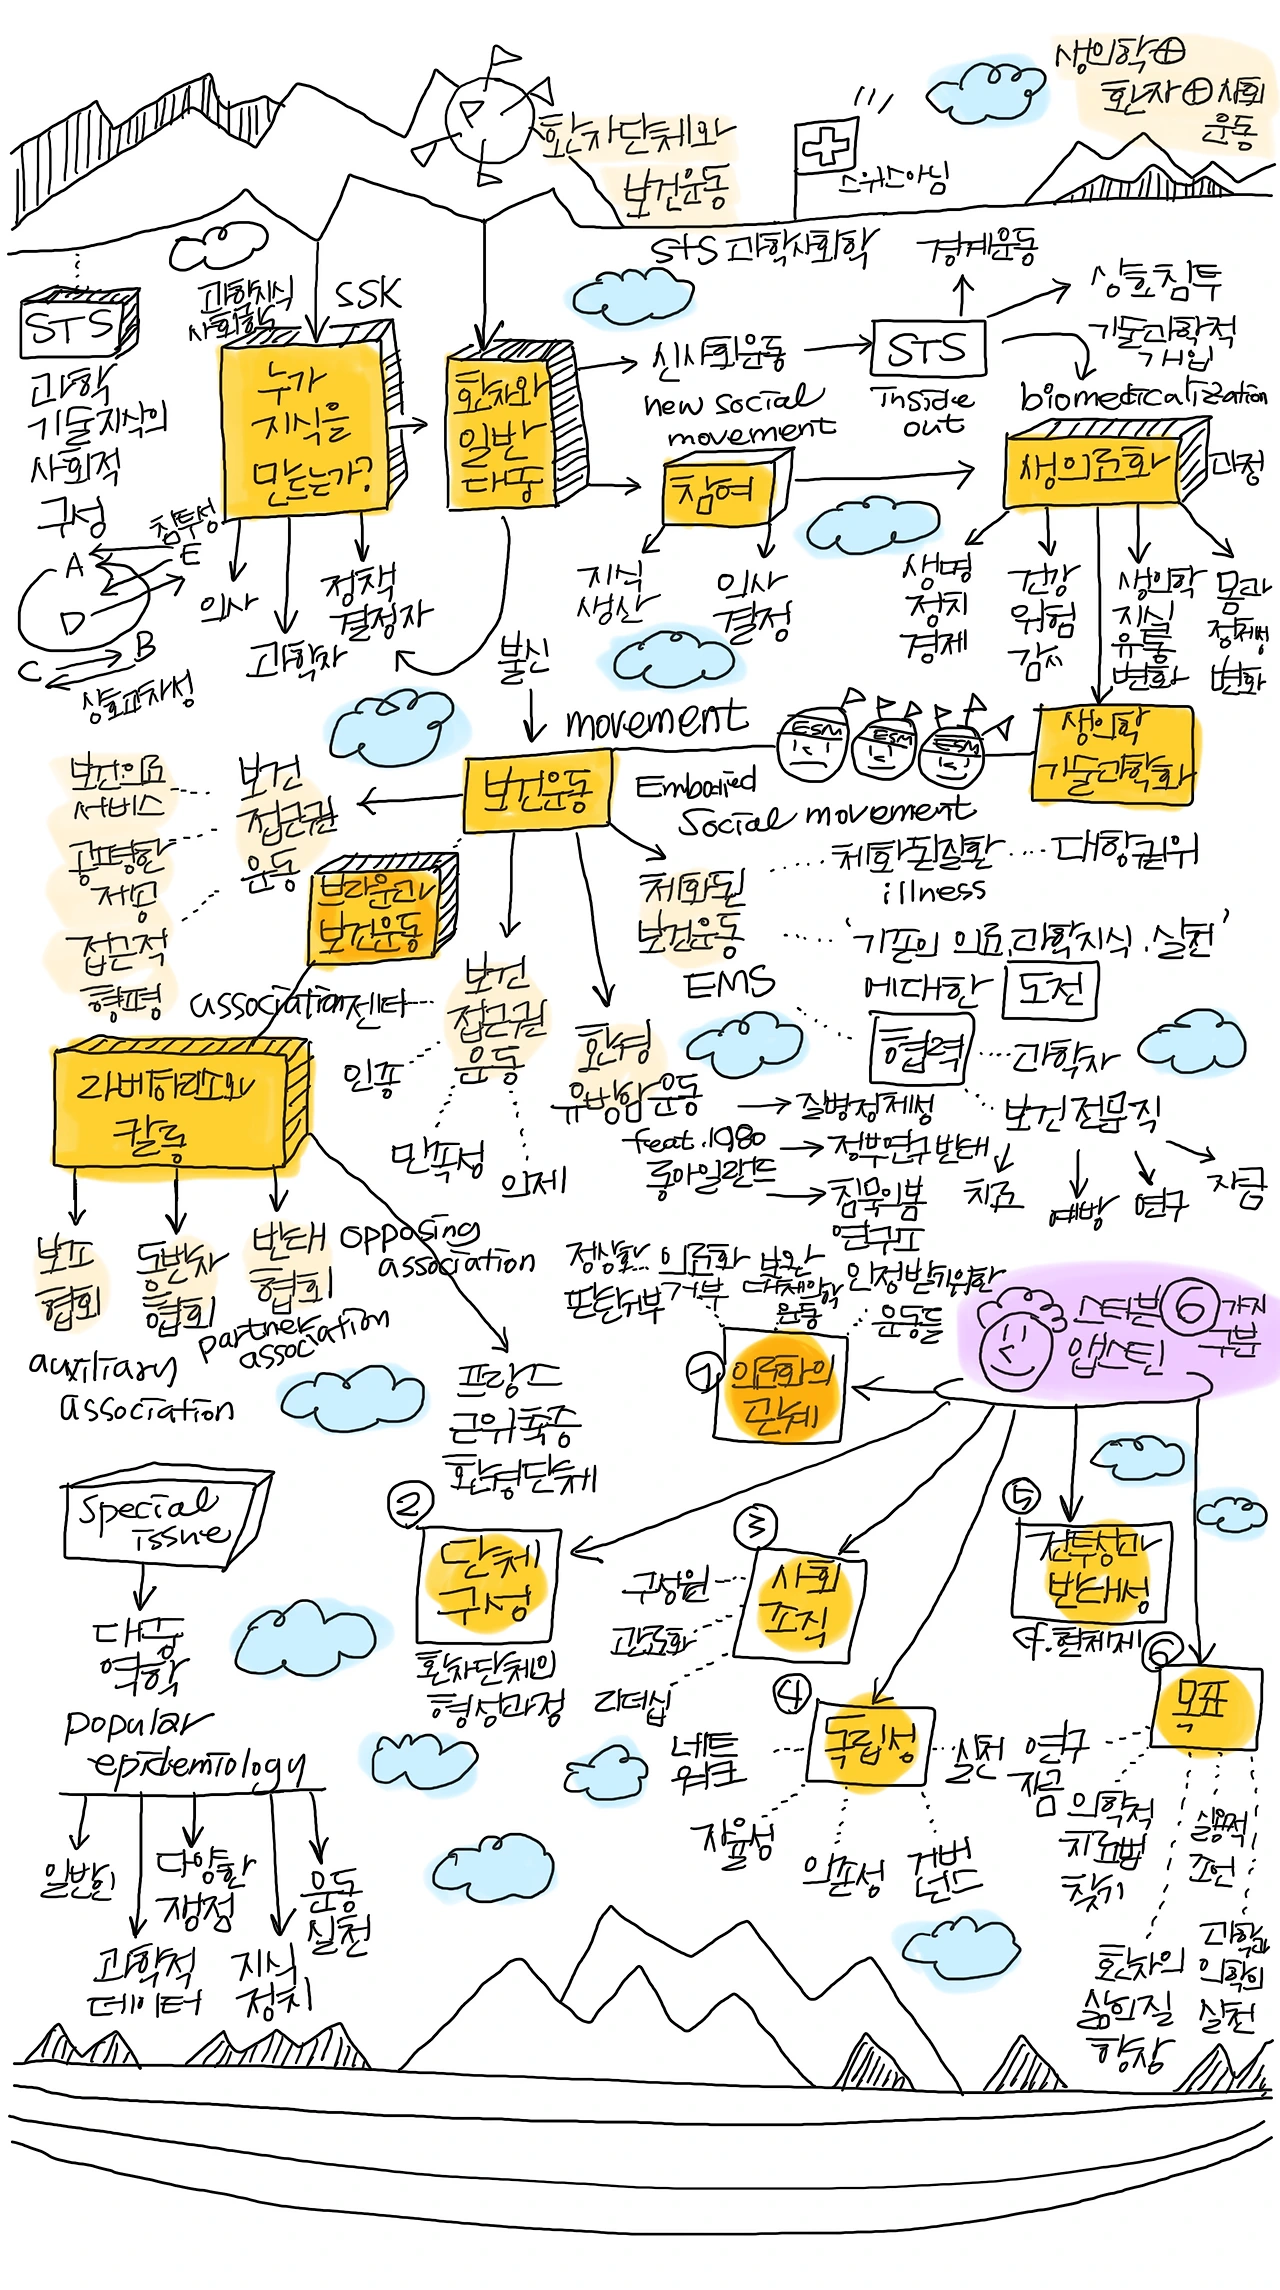 생의학⊕
환자⊕사회
운동
환자단체와
보건운동
스위스아님
STS 과학사회학
경계운동
상호침투
기술과학적
개입
STS
과학
기술지식의
사회적
구성
과학지식
사회학
SSK
누가
지식을
만드는가?
환자와
일반
대중
신사회운동
new social
movement
STS
inside
out
biomedicalization
생의료화
과정
참여
지식
생산
의사
결정
침투성
A
E
D
B
C
상호교차성
의사
과학자
정책
결정자
불신
생명
정치
경제
건강
위험
감시
생의학
지식
유통
변화
몸과
정체성
변화
movement
ESM
ESM
ESM
생의학
기술과학화
Embodied
Social movement
보건운동
보건의료
서비스
공평한
제공
접근적
형평
보건
접근권
운동
브라운과
보건운동
체화된
보건운동
EMS
체화된질환
illness
대항권위
'기존의 의료, 과학지식.실천'
에대한
도전
협력
과학자
보건전문직
치료
예방
연구
자금
association
젠더
인종
민족성
의제
보건
접근권
운동
환경
유방암운동
feat.1980
롱아일랜드
질병정체성
정부연구반대
침묵의봄
연구소
라베하리소와
칼롱
보조
협회
동반자
협회
반대
협회
opposing
association
partner
association
auxiliary
association
프랑스
근위축증
환경단체
스티븐 ⑥가지
구분
앱스틴
정상화
판단거부
의료화
거부
보완
대체의학
운동
인정받기위한
운동들
①
의료화의
단계
②
단체
구성
환자단체의
형성과정
③
사회
조직
구성원
관료화
리더십
④
독립성
네트
워크
자율성
의존성
거버
넌스
실천
⑤
전투성과
반대성
cf.현체제
⑥
목표
연구
자금
의학적
치료법
찾기
실용적
조언
환자의
삶의질
향상
과학과
의학의
실천
special
issue
대중
역학
popular
epidemiology
일반인
과학적
데이터
다양한
쟁점
지식
정치
운동
실천